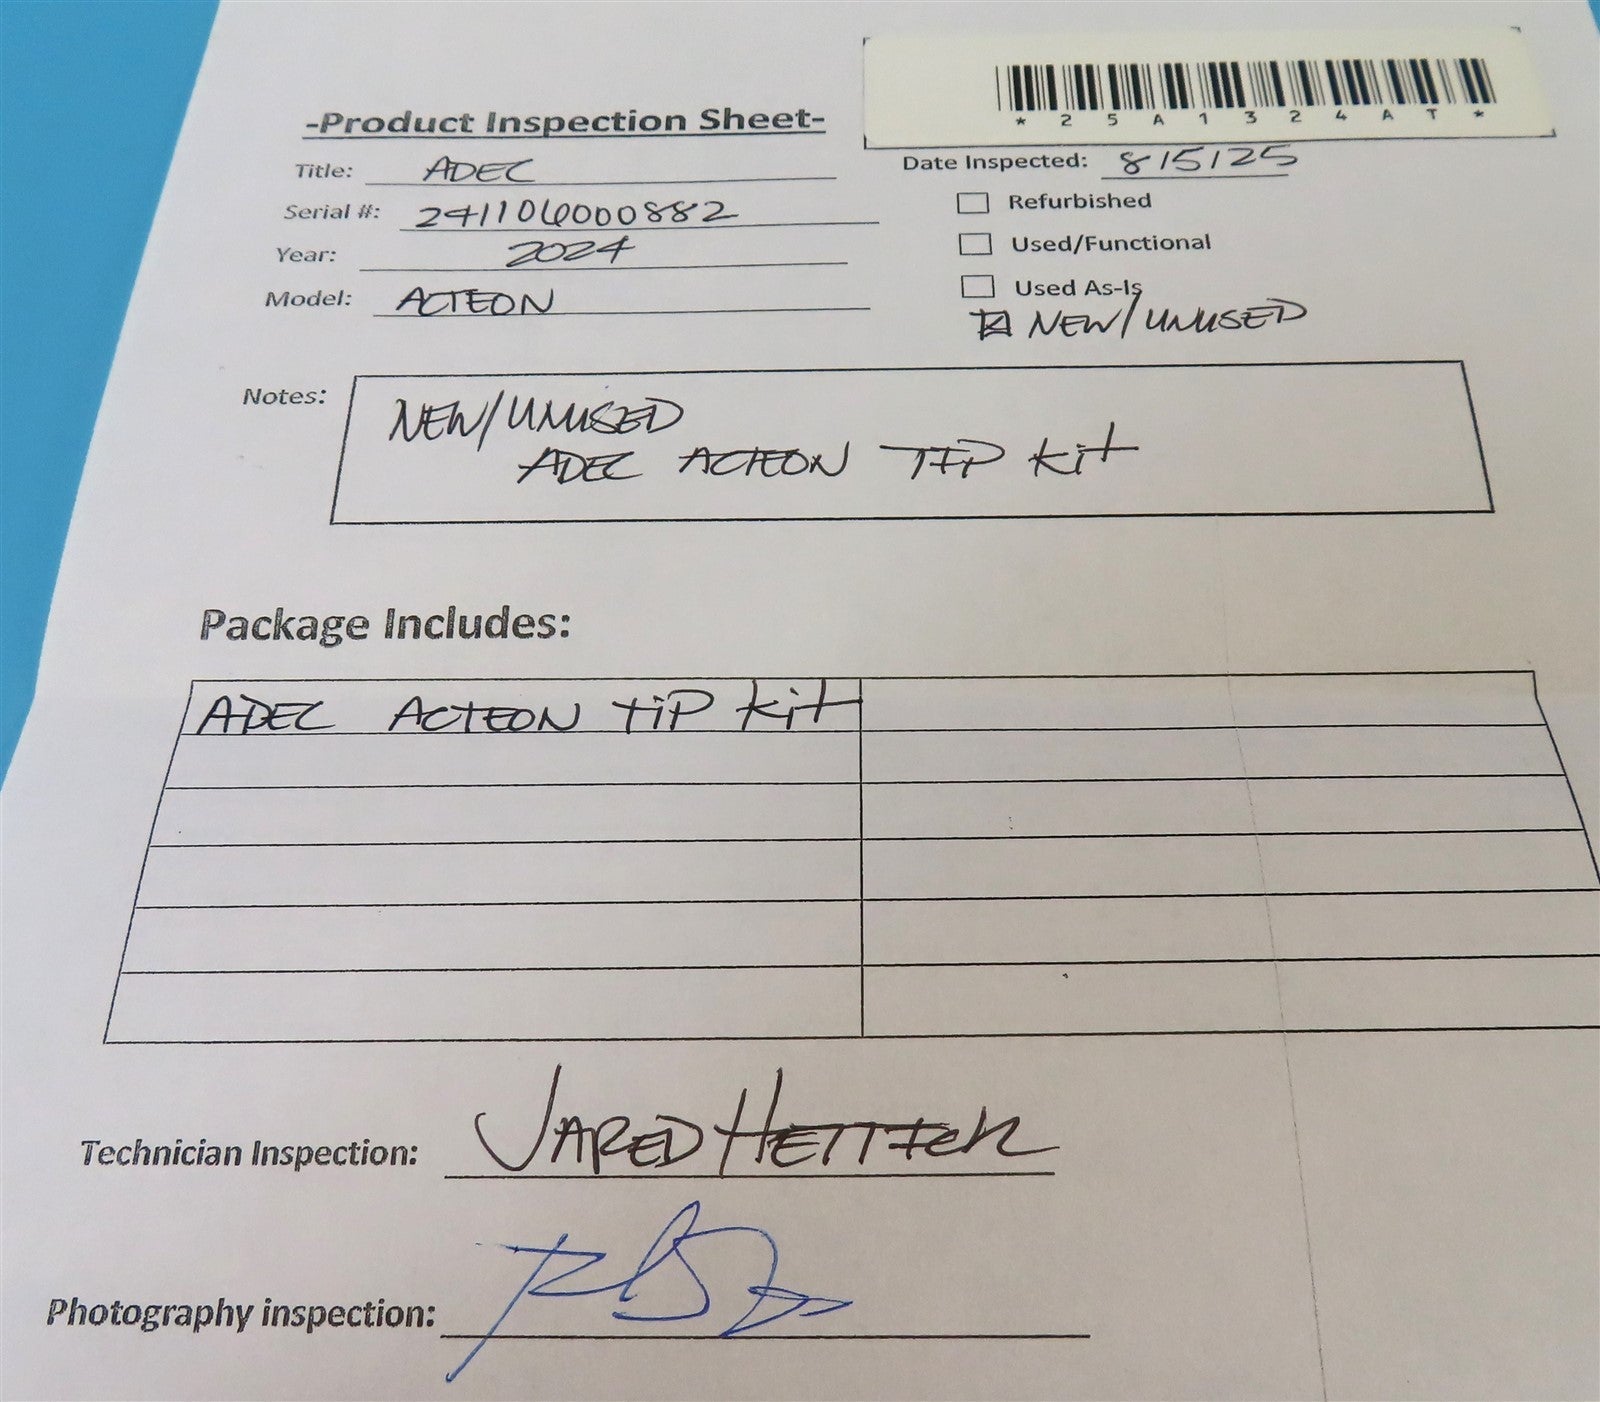 *25A1324AT*
-Product Inspection Sheet-
Title: ADEC
Date Inspected: 8/5/25
Serial #: 241106000882
Refurbished
Year: 2024
Used/Functional
Model: ACTEON
Used As-Is
NEW/UNUSED
Notes: NEW/UNUSED
ADEC ACTEON TIP Kit
Package Includes:
ADEC ACTEON TiP Kit
Technician Inspection: JARED
Photography inspection: